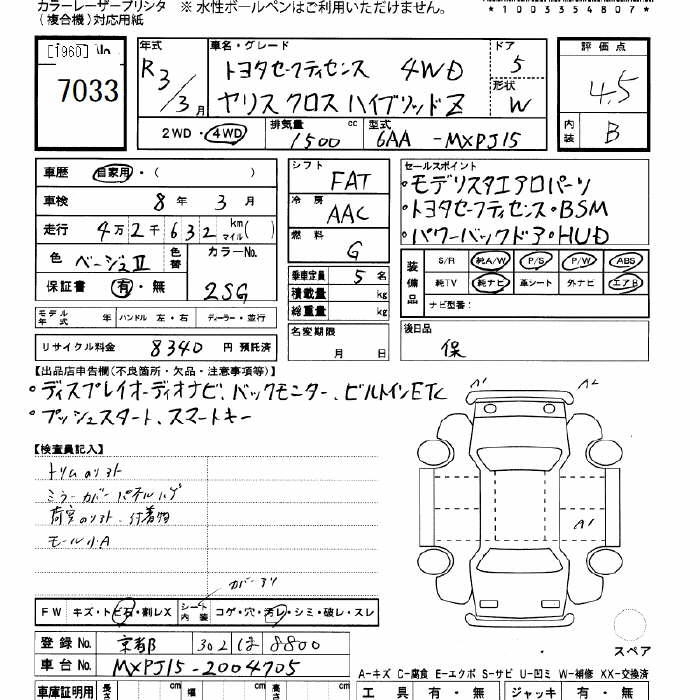 カラーレーザープリンタ ※ 水性ボールペンはご利用いただけません。
(複合機)対応用紙
*1003354807*
[1960]
7033
年式 R3/3月
車名・グレード トヨタセーフティセンス 4WD
ヤリスクロスハイブリッドZ
ドア 5
形状 W
評価点 4.5
内装 B
2WD・4WD
排気量 1500 cc
型式 6AA-MXPJ15
車歴 自家用・( )
車検 8年 3月
走行 4万2千632 km マイル( )
色 ベージュⅡ 色替 カラーNo. 2SG
保証書 有・無
シフト FAT
冷房 AAC
燃料 G
乗車定員 5名
積載量 kg
総重量 kg
名変期限 月 日
セールスポイント
・モデリスタエアロパーツ
・トヨタセーフティセンス・BSM
・パワーバックドア・HUD
装備品 S/R 純A/W P/S P/W ABS
純TV 純ナビ 革シート 外ナビ エアB
ナビ型番:
モデル年式 年 ハンドル 左・右 ディーラー・並行
リサイクル料金 8340 円 預託済
後日品
保
【出品店申告欄(不良箇所・欠品・注意事項等)】
・ディスプレイオーディオナビ、バックモニター、ビルトインETC
・プッシュスタート、スマートキー
A1 A2
【検査員記入】
トリムのソト
ミラーカバーパネルハゲ
荷室のソト・付着物
モール小A
A1
ガバーアリ
FW キズ・トビ石・割レX
シート内装 コゲ・穴・汚レ・シミ・破レ・スレ
スペア
登録No. 京都 302 ほ 8800
車台No. MXPJ15-2004705
A-キズ C-腐食 E-エクボ S-サビ U-凹ミ W-補修 XX-交換済
車庫証明用 長さ cm 幅 cm 高さ cm
工具 有・無 ジャッキ 有・無